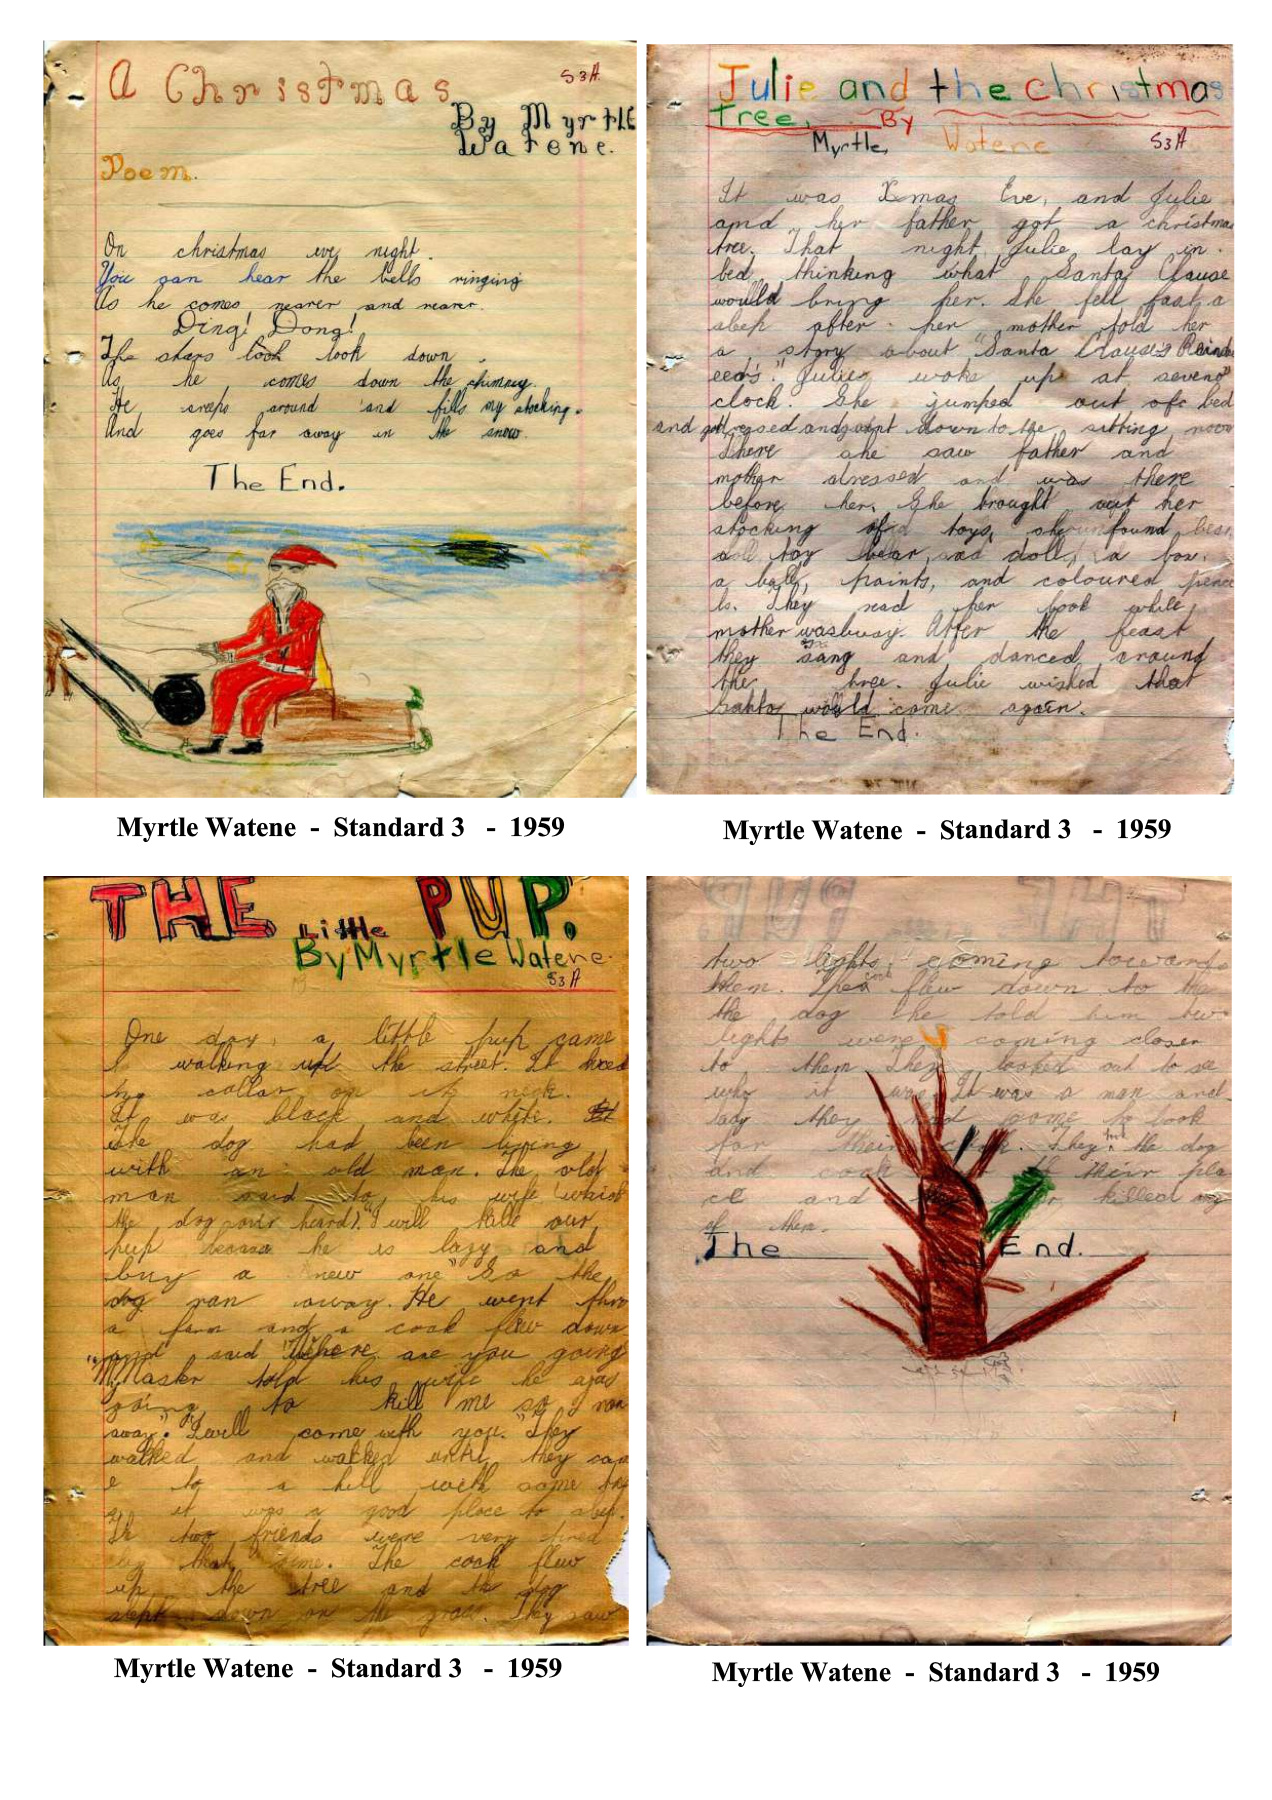 A Christmas
S3A
By Myrtle
Watene.
Poem.
On christmas eve night.
You can hear the bells ringing
As he comes nearer and nearer.
Ding! Dong!
The stars look look down.
As he comes down the chimney.
He creeps around and fills my stocking.
And goes far away in the snow.
The End.
Myrtle Watene - Standard 3 - 1959
Julie and the christmas
Tree. By
Myrtle, Watene S3A
It was Xmas Eve, and Julie
and her father got a christmas
tree. That night Julie lay in
bed thinking what Santa Clause
would bring her. She fell fast a
sleep after her mother told her
a story about "Santa Clause's Reind
eeds." Julie woke up at seveno"
clock. She jumped out of bed
and got dressed and went down to the sitting room
There she saw father and
mother dressed and was there
before her. She brought out her
stocking of toys, she found
toy bear, and doll, a
a ball, paints, and coloured penci
ls. They read her book while
mother was busy. After the feast
they sang and danced around
the tree. Julie wished that
Santa would come again.
The End.
Myrtle Watene - Standard 3 - 1959
THE Little PUP.
By Myrtle Watene.
S3A
One day, a little pup came
walking up the street. It had
no collar on its neck.
It was black and white.
The dog had been living
with an old man. The old
man said to his wife (which
the dog over heard). "I will our
pup he is lazy and
buy a new one" So the
dog ran away. He went thro
a farm and a cock flew down
and said "Where are you going
"My Master told his wife he was
going to kill me so I ran
away." "I will come with you." They
walked and walked until they cam
e to a hill with some
it was a good place to sleep.
The two friends were very tired
by that time. The cock flew
up the tree and the dog
slept down on the grass. They saw
Myrtle Watene - Standard 3 - 1959
two lights coming towards
them. The cock flew down to the
the dog he told him two
lights were coming closer
to them They looked out to see
who it was. It was a man and
lady they had come to look
for their They took the dog
and cock to their pla
ce and killed
of them.
The End.
Myrtle Watene - Standard 3 - 1959